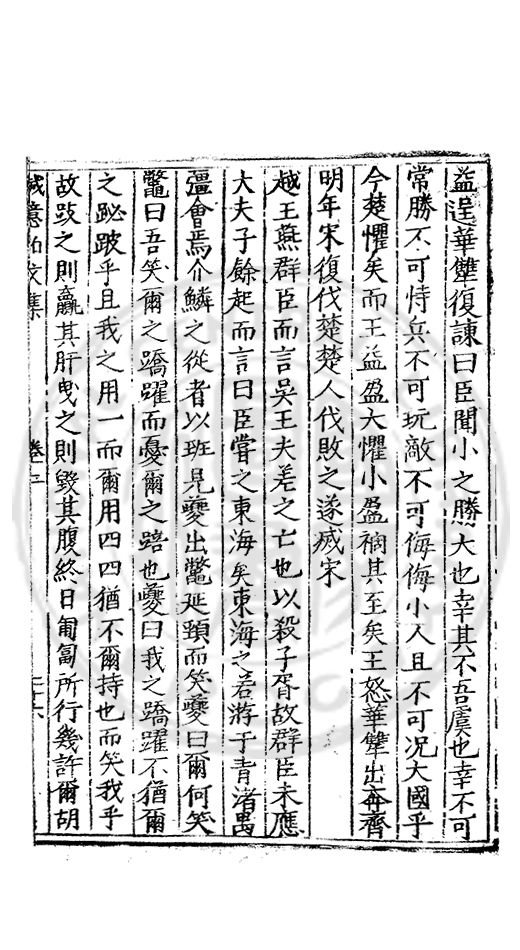 益逞華犨復諫曰臣聞小之勝大也幸其不吾虞也幸不可
常勝不可恃兵不可玩敵不可侮侮小人且不可況大國乎
今楚懼矣而王益盈大懼小盈禍其至矣王怒華犨出奔齊
明年宋復伐楚楚人伐敗之遂滅宋
越王燕群臣而言吳王夫差之亡也以殺子胥故群臣未應
大夫子餘起而言曰臣嘗之東海矣東海之若游于青渚禺
彊會焉介鱗之從者以班見夔出鼈延頸而笑夔曰爾何笑
鼈曰吾笑爾之蹻躍而憂爾之踣也夔曰我之蹻躍不猶爾
之跛跛乎且我之用一而爾用四四猶不爾持也而笑我乎
故跂之則羸其骭曳之則毀其腹終日匍匐所行幾許爾胡
誠意伯文集 卷二 二十六